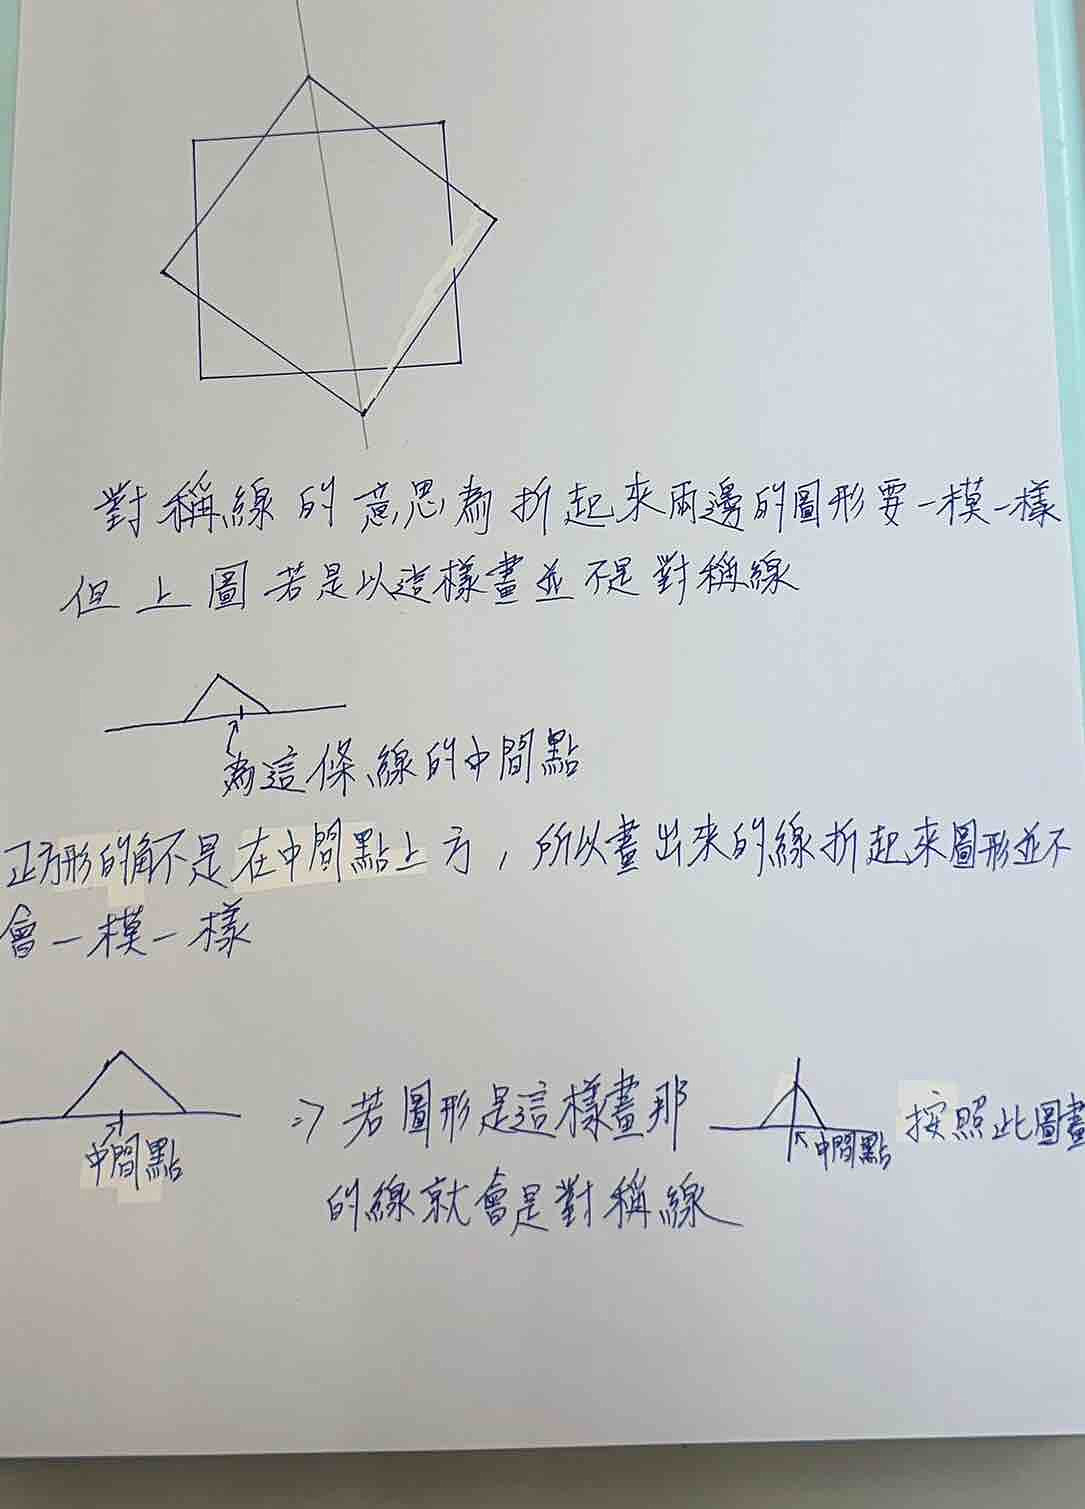 對稱線的意思為折起來兩邊的圖形要一模一樣
但上圖若是以這樣畫並不是對稱線
為這條線的中間點
正方形的角不是在中間點上方，所以畫出來的線折起來圖形並不
會一模一樣
中間點
⇒若圖形是這樣畫那
中間點
按照此圖畫
的線就會是對稱線